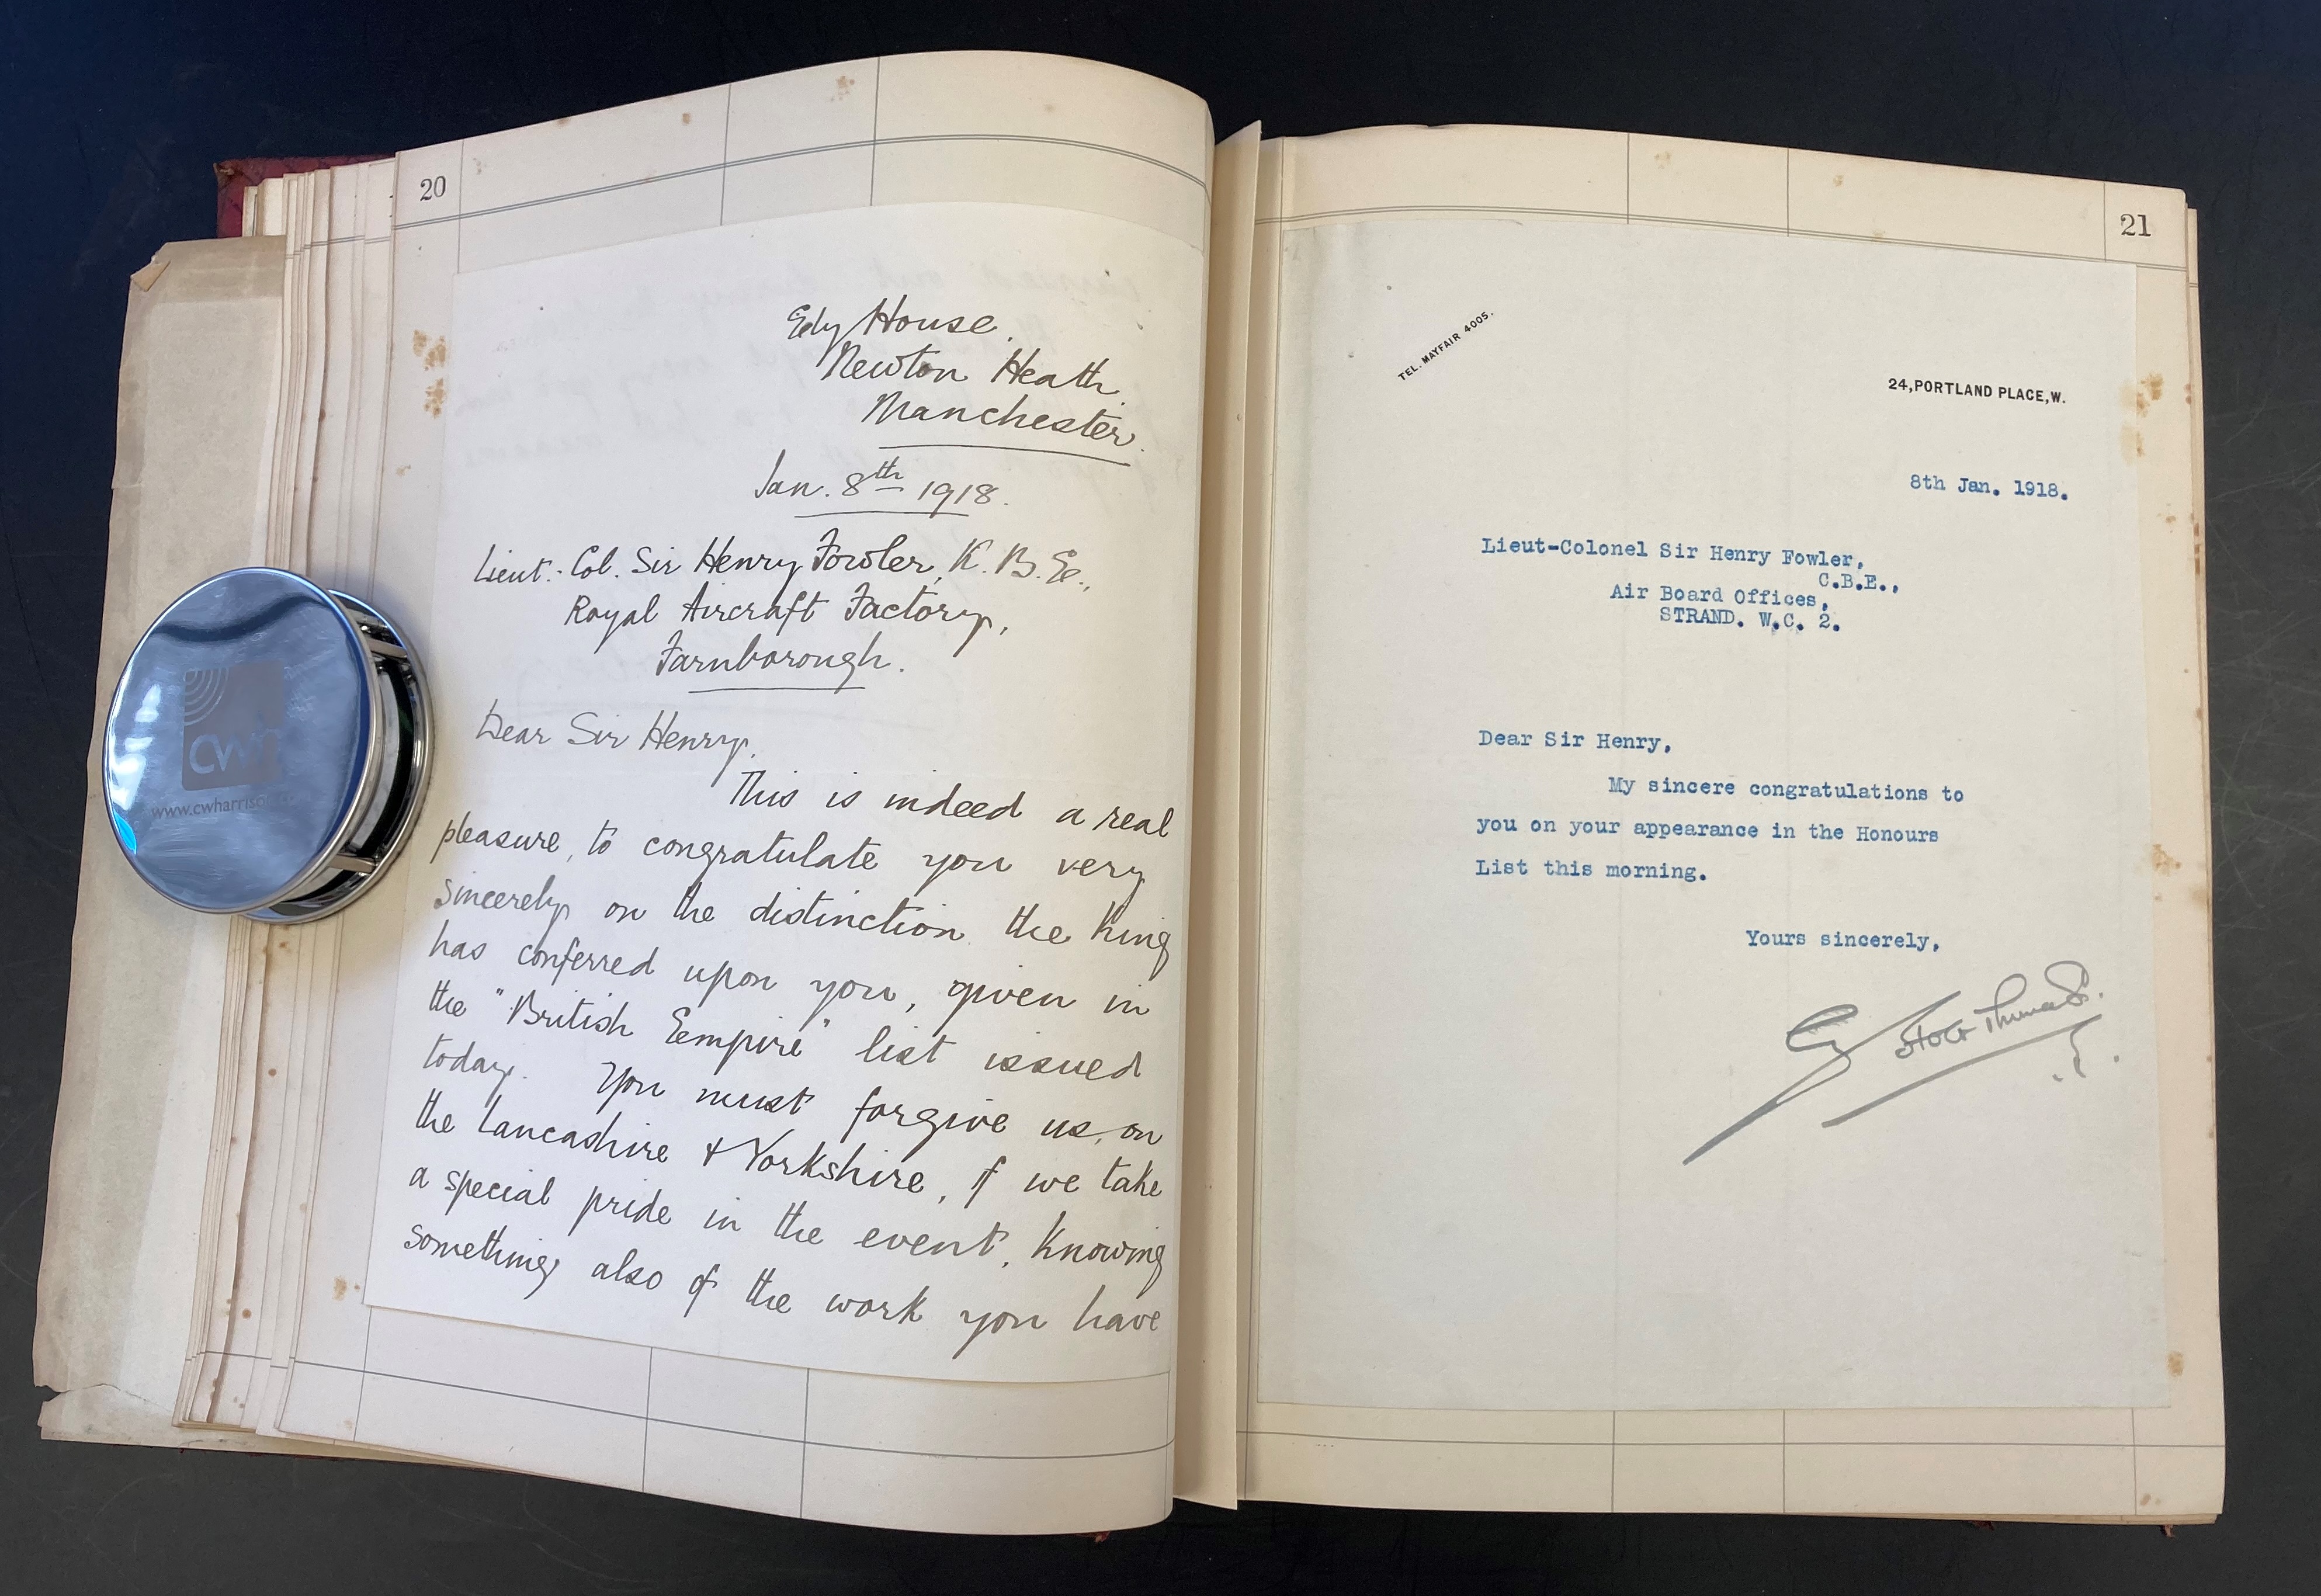 20
Edy House,
Newton Heath,
Manchester.
Jan. 8th 1918.
Lieut.-Col. Sir Henry Fowler, K.B.E.,
Royal Aircraft Factory,
Farnborough.
Dear Sir Henry,
This is indeed a real
pleasure, to congratulate you very
sincerely on the distinction the King
has conferred upon you, given in
the "British Eempire" list issued
today. You must forgive us, on
the Lancashire & Yorkshire, if we take
a special pride in the event. Knowing
something also of the work you have
CWH
www.cwharrison
21
TEL. MAYFAIR 4005.
24, PORTLAND PLACE, W.
8th Jan. 1918.
Lieut-Colonel Sir Henry Fowler,
C.B.E.,
Air Board Offices,
STRAND. W.C. 2.
Dear Sir Henry,
My sincere congratulations to
you on your appearance in the Honours
List this morning.
Yours sincerely,